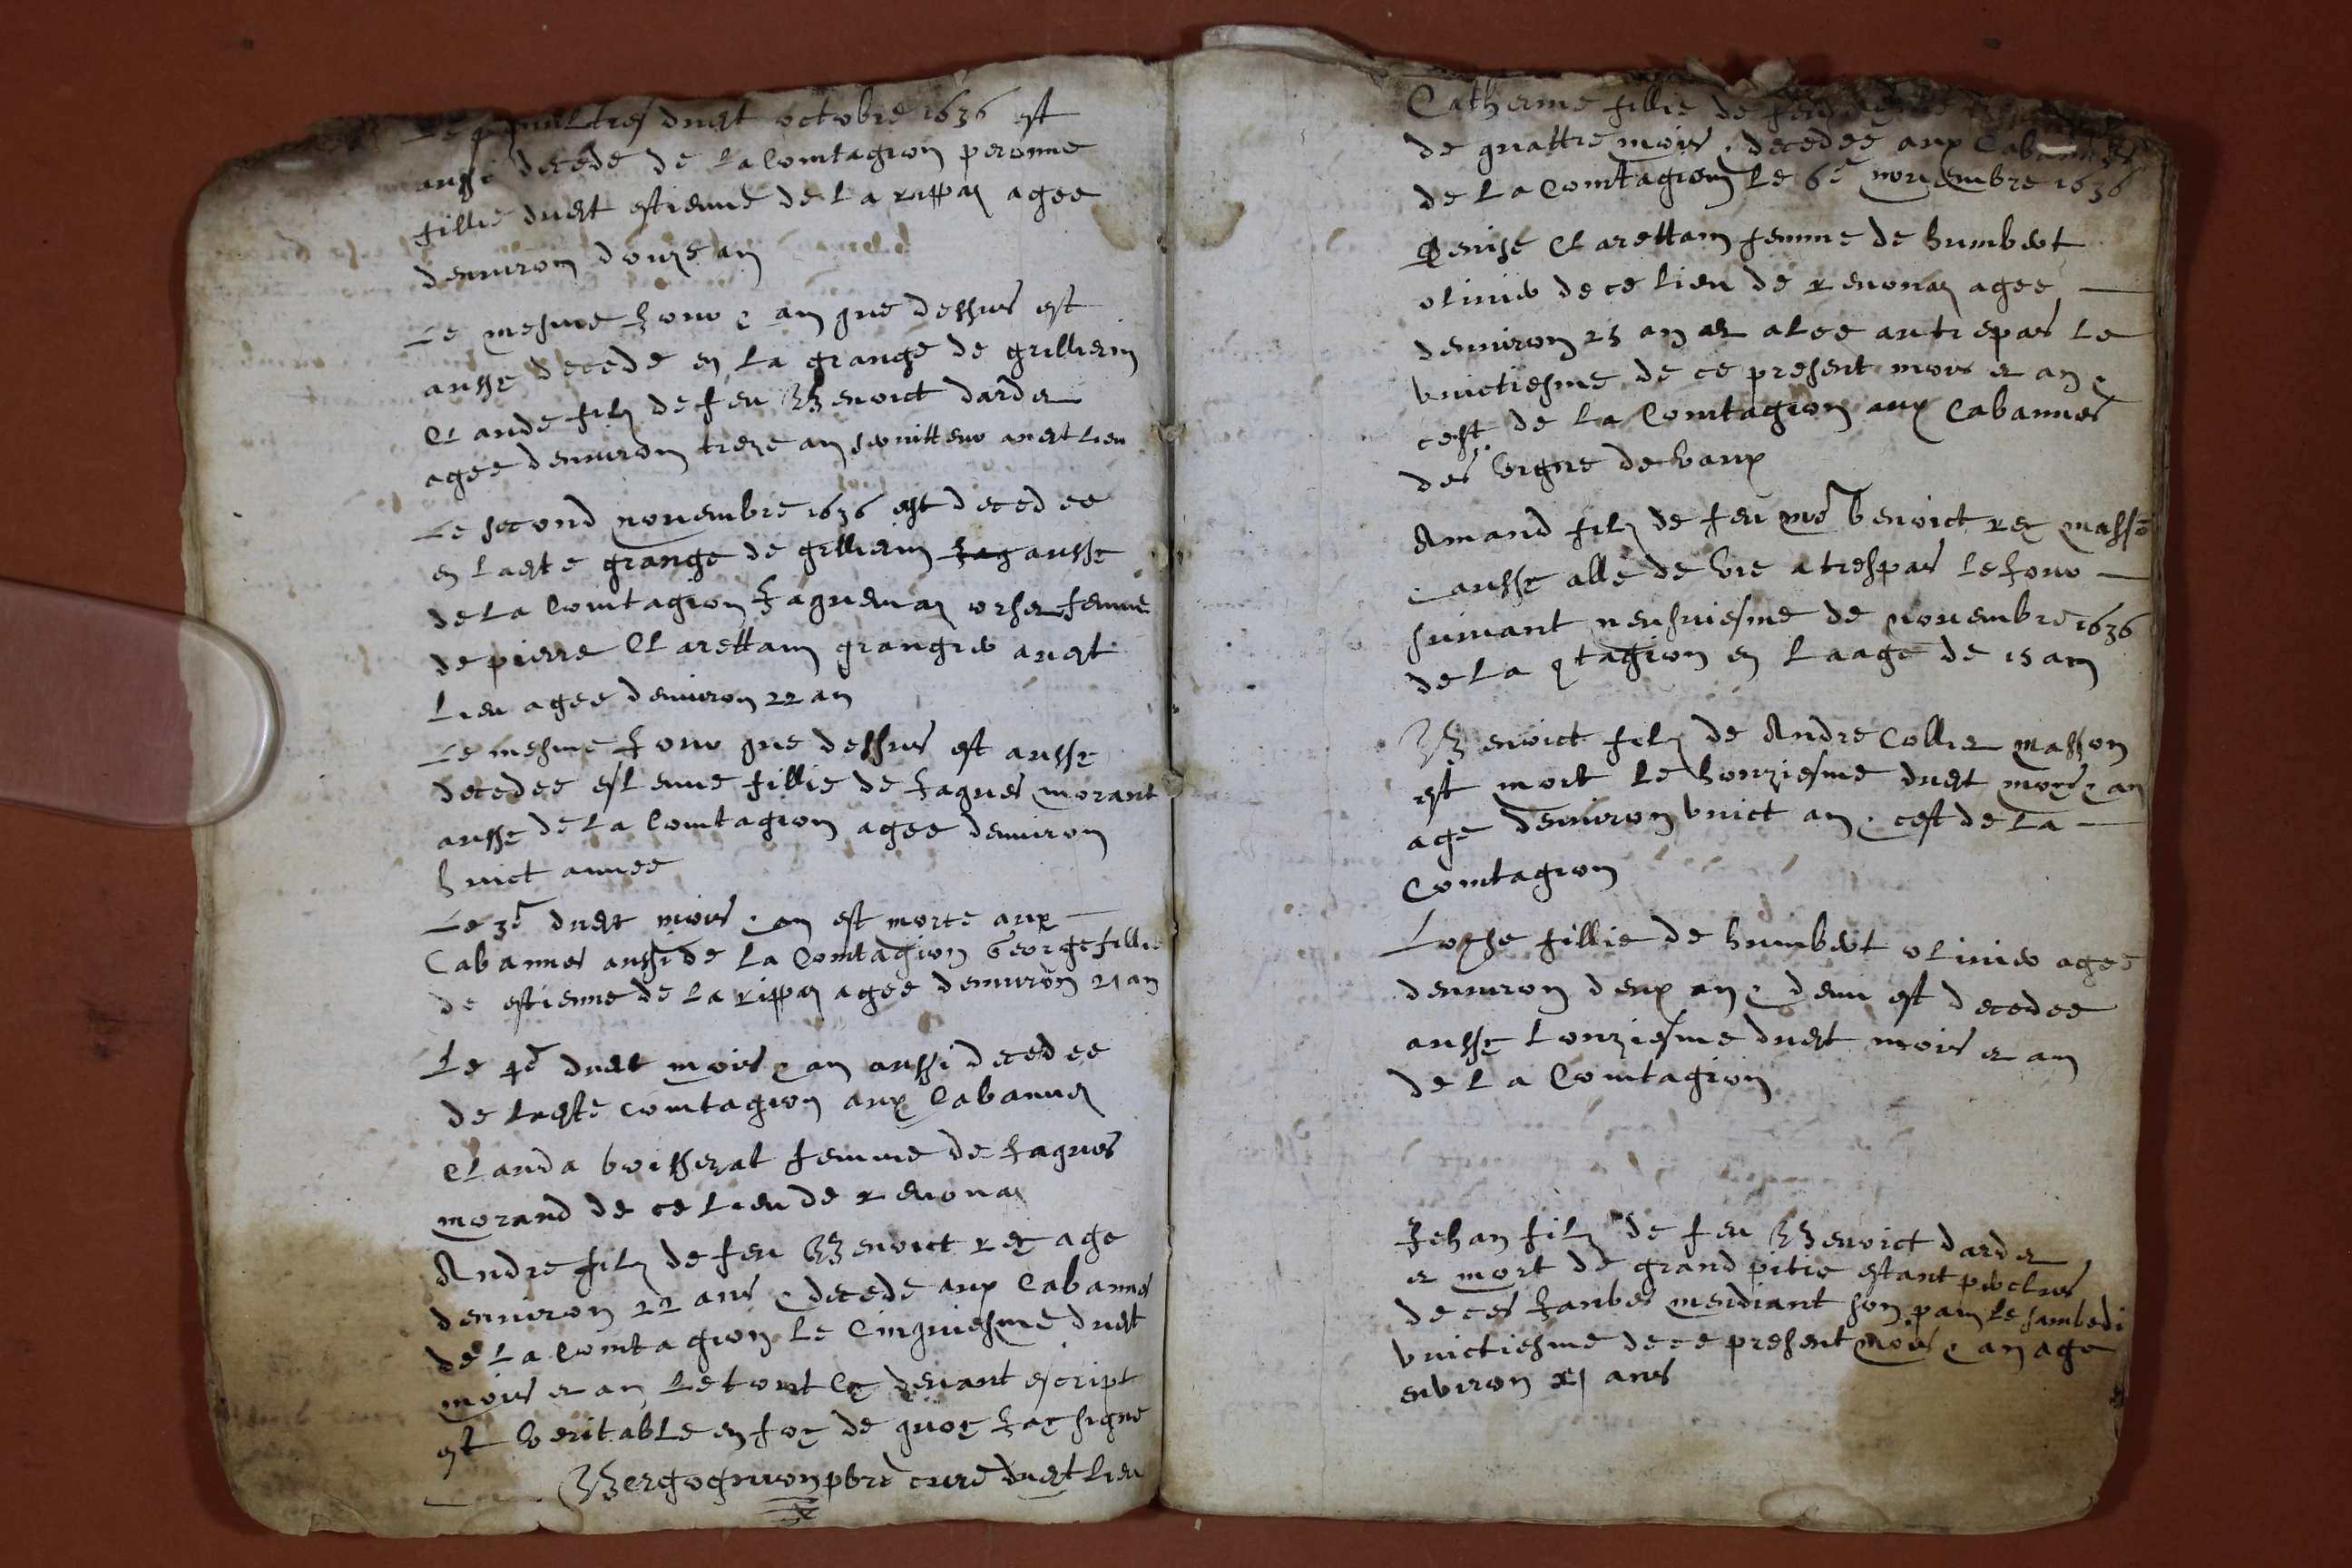 dudt octobre 1636 est
aussi decede de La Contagion peronne
fillie dudt estienne de La rippaz agee
denviron douze an
Le mesme Jour & an que dessus est
ausse decede en La grange de grillierin
Claude filz de feu Benoict darder
agee denviron treze an serviteur audt Lieu
Le second novembre 1636 est decedee
en ladte grange de grillierin Jag ausse
de La Contagion Jaquemaz orset femme
de pierre Clarettain grangier audt
Lieu agee denviron 22 an
Le mesme Jour que dessus est ausse
decedee eslenne fillie de Jaques morant
ausse de La Contagion agee denviron
huict annee
Le 3e dudt mois & an est morte aux
Cabannes aussi de La Contagion George fillie
de estienne de La rippaz agee denviron 21 an
Le 4e dudt mois & an aussi decedee
de Ladte contagion aux Cabannes
Clauda boisserat femme de Jaques
morand de ce Lieu de revonaz
Andre filz de feu Benoict rey age
denviron 22 ans & decede aux Cabannes
de La Contagion Le Cinquiesme dudt
mois et an Le tout Cy devant escript
est veritable en foy de quoy Jay signe
Bergognion pbre cure dudt Lieu
Catherine fillie de feu
de quattre mois & decedee aux Cabannes
de La Contagion Le 6e novembre 1636
Denise Clarettain femme de humbert
olivier de ce Lieu de revonaz agee
denviron 25 an est alee autrepas Le
vuictiesme de ce present mois et an &
cest de La Contagion aux Cabannes
des vigne de vaux
Amand filz de feu me benoict rey masso
& ausse alle de vie a trespas Le Jour
suivant neufviesme de novembre 1636
de La 9tagion en Laage de 15 an
Benoict filz de Andre Collier masson
est mort Le honziesme dudt mois & an
age denviron vuict an & cest de La
Contagion
Loyse fillie de humbert olivier agee
denviron deux an & demi est decedee
ausse Lonziesme dudt mois et an
de La Contagion
Jehan filz de feu Benoict darder
et mort de grand pitie estant perclus
de ces Janbes mendiant son pain Le sambedi
vuictiesme de ce present mois & an age
environ xj ans